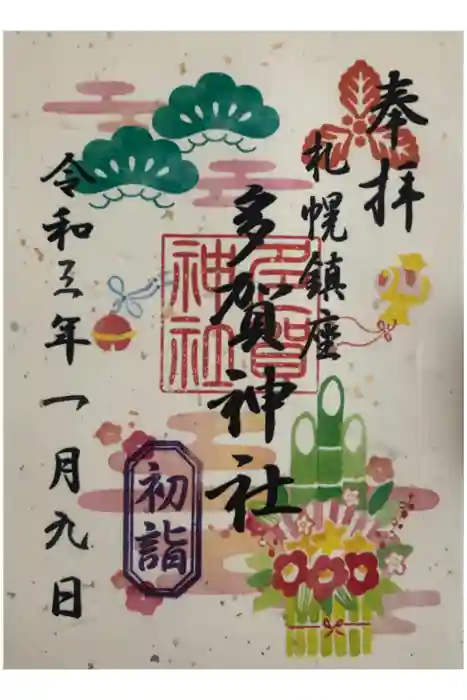 奉拝
札幌鎮座
多賀神社
多賀
神社
初詣
令和三年一月九日